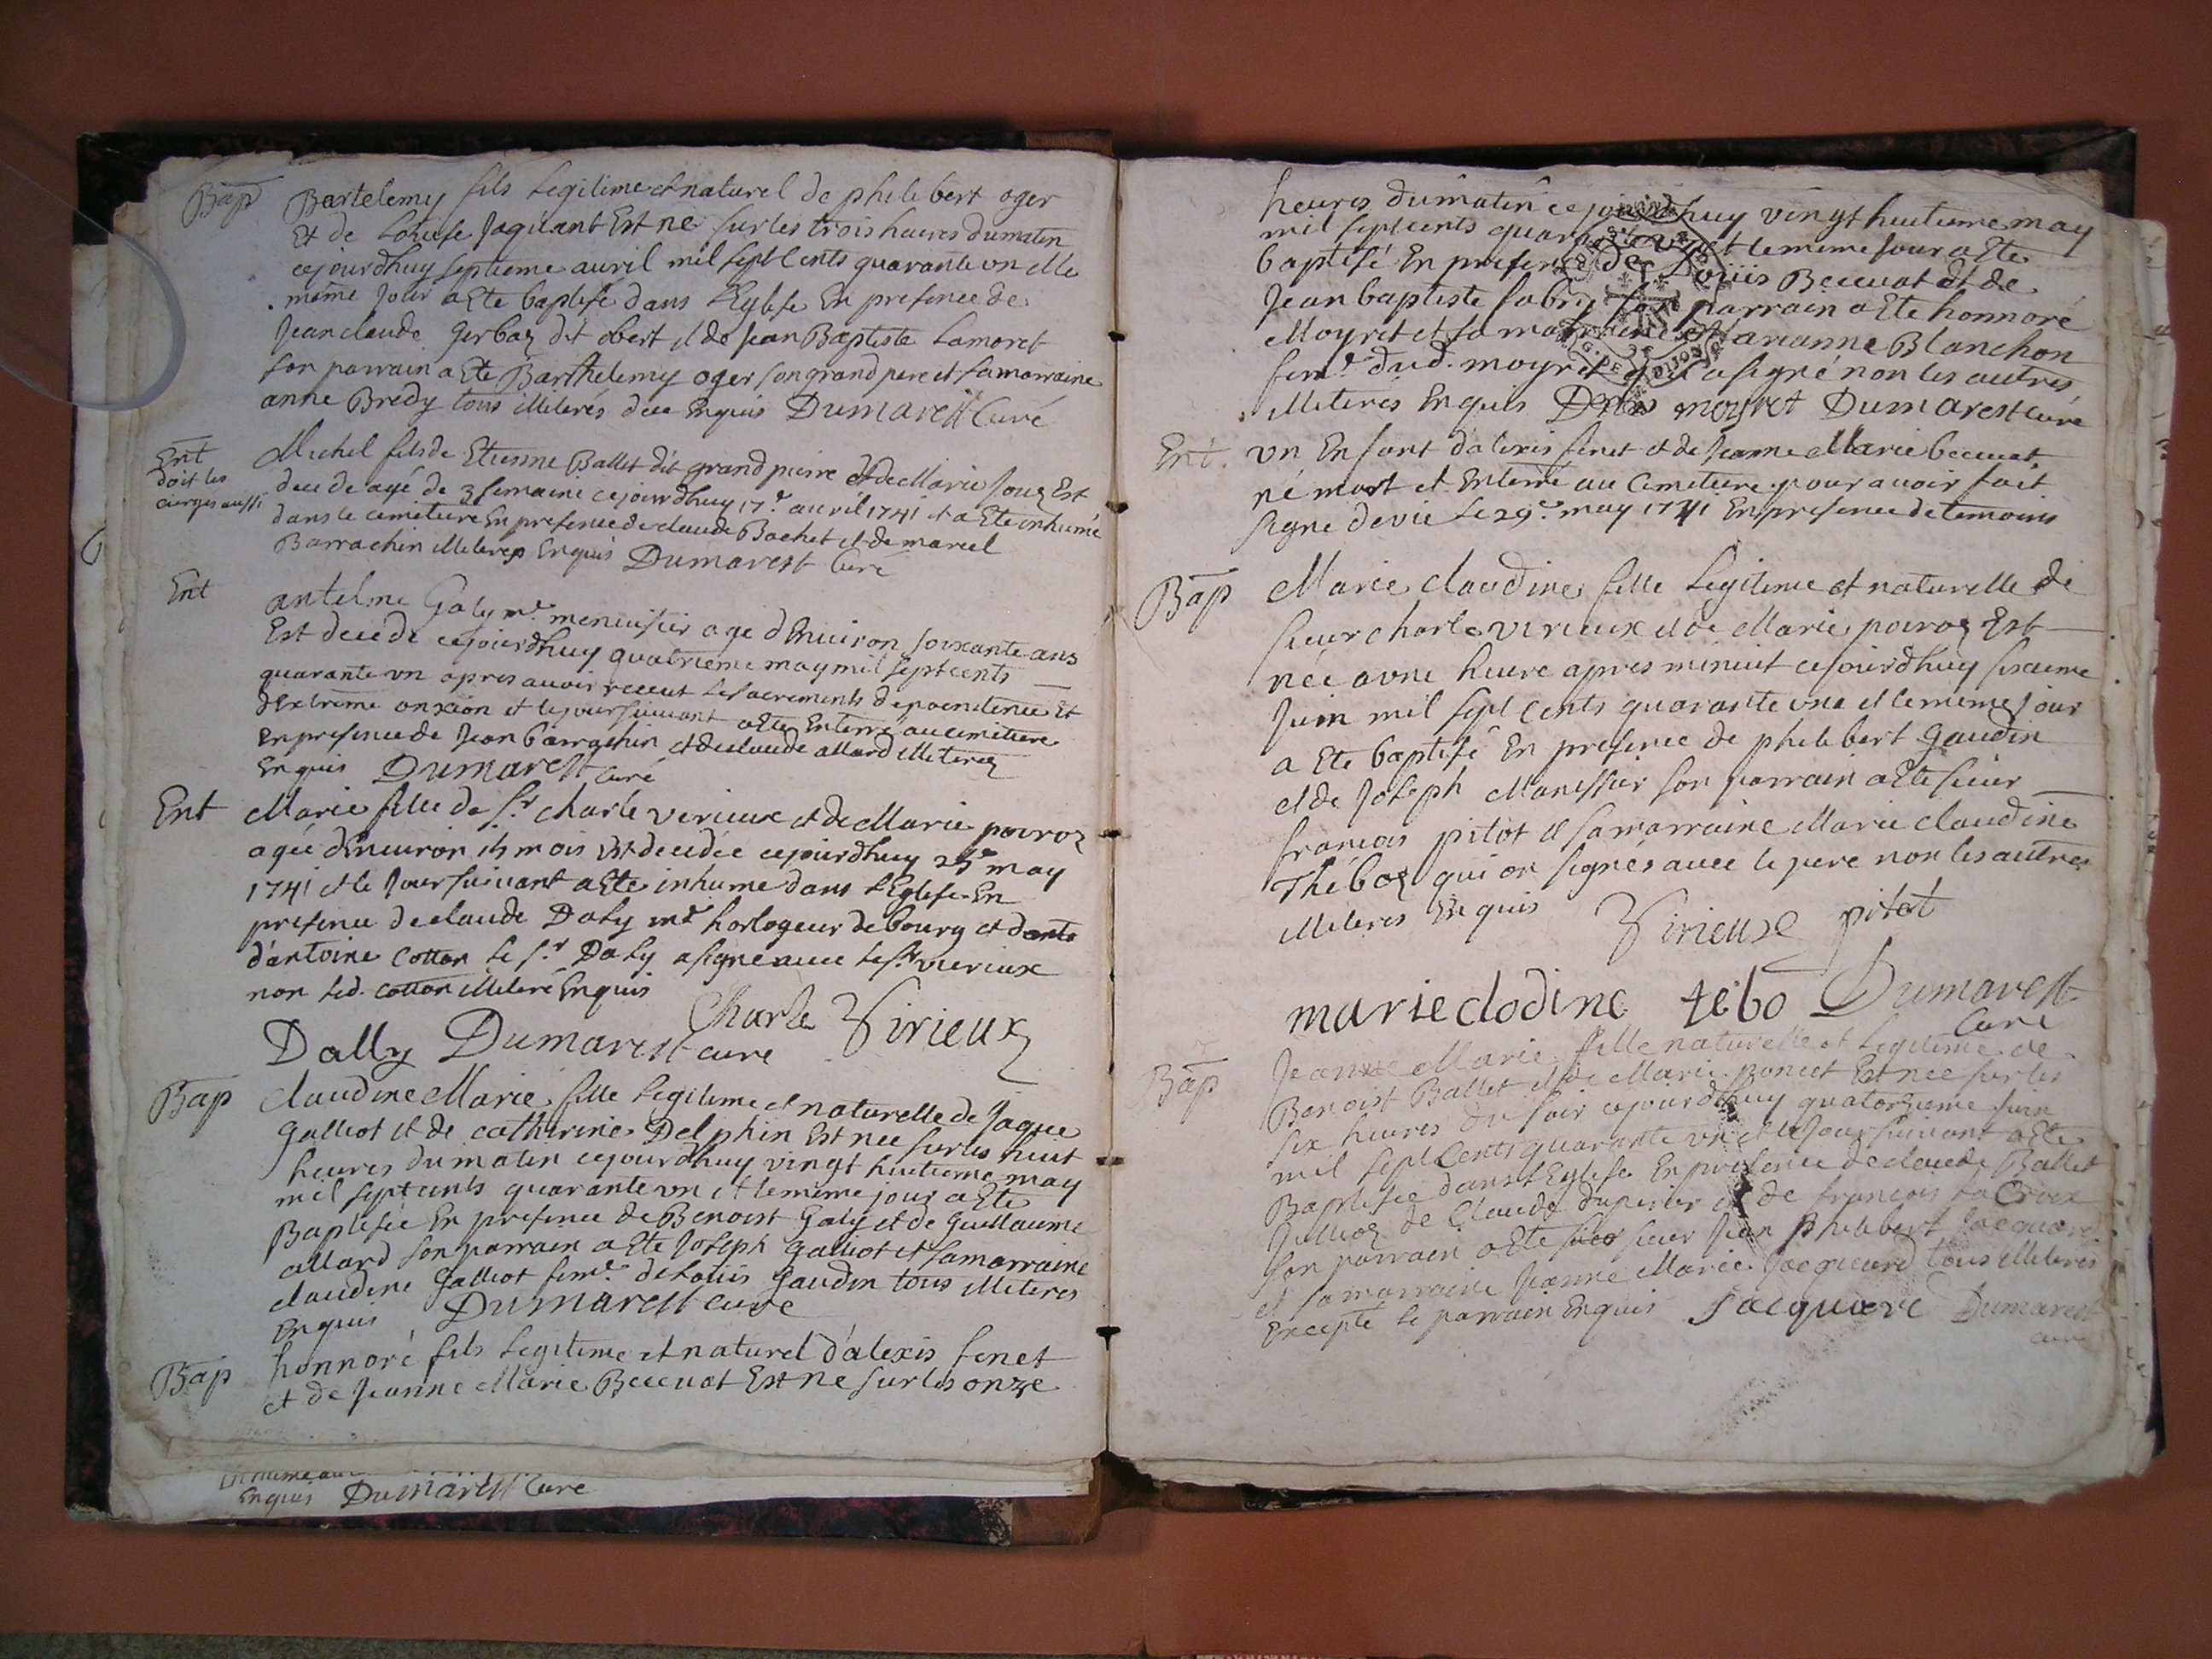 Bap Bartelemy fils Legitime et naturel de philibert oger
Et de Louise Jaquant Est ne sur les trois heures du matin
cejourdhuy septieme auril mil sept Cents quarante un et le
même Jour a Ete baptisé dans L'Eglise En presence de
Jean claude Gerbaz dit obert et de Jean Baptiste Lamoret
son parrain a Ete Barthelemy oger son grand pere et sa marraine
anne Bredy tous illiterés de ce Enquis Dumarest Curé
Ent Michel fils de Etienne Ballet dit grand pierre et de Marie
doit les
cierges aussi
decede agé de 3 semaine cejourdhuy 17.e auril 1741 et a Ete inhumé
dans le cemetiere En presence de claude Bachet et de marcel
Barrachin illiteres Enquis Dumarest Curé
Ent antelme Galy m.e menuisier age d'Enuiron soixante ans
Est decede cejourdhuy quatrieme may mil sept cents
quarante un apres auoir receut les sacrements de poenitence Et
d'Extrême onxion et le jour suiuant a Ete Enterré au cimetiere
En presence de Jean barrachin et de claude allard illiterez
Enquis Dumarest curé
Ent Marie fille de S.r charle verieux et de Marie poiroz
agée d'Enuiron 15 mois Est decedée cejourdhuy 25.e may
1741 et le Jour suiuant a Ete inhume dans L'Eglise En
presence de claude Daly m.e horlogeur de bourg et
d'antoine Cotton Le S.r Daly a signé auec le S.r verieux
non led. cotton illiteré Enquis
Charle Virieux
Dally Dumarest cure
Bap Claudine Marie fille Legitime et naturelle de Jaque
Galliot et de catherine Delphin Est nee sur les huit
heures du matin cejourdhuy vingt huitieme may
mil sept cents quarante un et le meme jour a Ete
Baptisée En presence de Benoist Galy et de Guillaume
allard son parrain a Ete Joseph Galliot et sa marraine
claudine Galliot fem.e de Louis Gaudin tous illiteres
Enquis Dumarest cure
Bap honnoré fils Legitime et naturel d'alexis fenet
et de Jeanne Marie Beccuat Est ne sur les onze
Enquis Dumarest Cure
heures du matin ce jourdhuy vingt huitieme may
mil sept cents quarante un et le meme Jour a Ete
baptisé En presence de Louis Beccuat et de
Jean baptiste fabry son parrain a Ete honnoré
Moyret et sa marraine Marianne Blanchon
fem.e dud. moyret qui a signé non les autres
illiteres Enquis moyret Dumarest Curé
Ent. Un Enfant d'alexis fenet et de Jeanne Marie beccuat
né mort et Enterré au Cemetiere pour auoir fait
signe de vie le 29.e may 1741 En presence de temoins
Bap Marie claudine fille Legitime et naturelle de
sieur charle virieux et de Marie poiroz Est
née a une heure apres minuit cejourdhuy sixieme
Juin mil sept cents quarante une et le meme Jour
a Ete baptisé En presence de philibert Gaudin
et de Joseph Manissier son parrain a Ete sieur
francois pitot et sa marraine Marie claudine
Thiboz qui on signés auec le pere non les autres
illiteres Enquis Virieux pitot
marie clodine tebo Dumarest
Curé
Bap Jeanne Marie fille naturelle et Legitime de
Benoist Ballet et de Marie poncet Est nee sur les
six heures du soir cejourdhuy quatorzieme Juin
mil sept Cents quarante un et le Jour suiuant a Ete
Baptisée dans L'Eglise En presence de claude Ballet
de Claude Duperier et de francois La Croix
son parrain a Ete sieur Jean philibert Jacquard
et sa marraine Jeanne Marie Jacquard tous illiteres
Excepté le parrain Enquis Jacquard Dumarest
cure